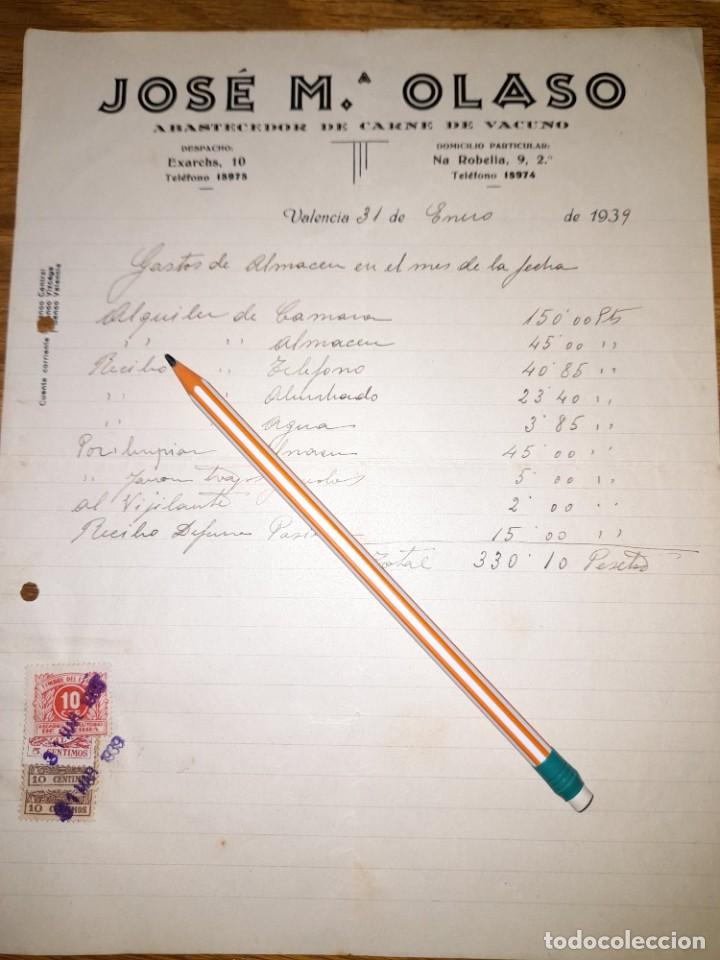 JOSÉ M.ª OLASO
ABASTECEDOR DE CARNE DE VACUNO
DESPACHO:
Exarchs, 10
Teléfono 18975
DOMICILIO PARTICULAR:
Na Robella, 9, 2.º
Teléfono 18974
Valencia 31 de Enero de 1939
Gastos de Almacen en el mes de la fecha
Alquiler de Camara 150'00 Pts
" " Almacen 45'00 "
Recibo " Telefono 40'85 "
" " Alumbrado 23'40 "
" " Agua 3'85 "
Por limpiar 45'00 "
" 5'00 "
al Vijilante 2'00 "
Recibo Defensa 15'00 "
Total 330'10 Pesetas
Cuenta corriente Central
Vizcaya
Valencia
TIMBRE DEL
10
5 CENTIMOS
31 MAR 1939
10 CENTIMOS
31 MAR 1939
10
todocoleccion